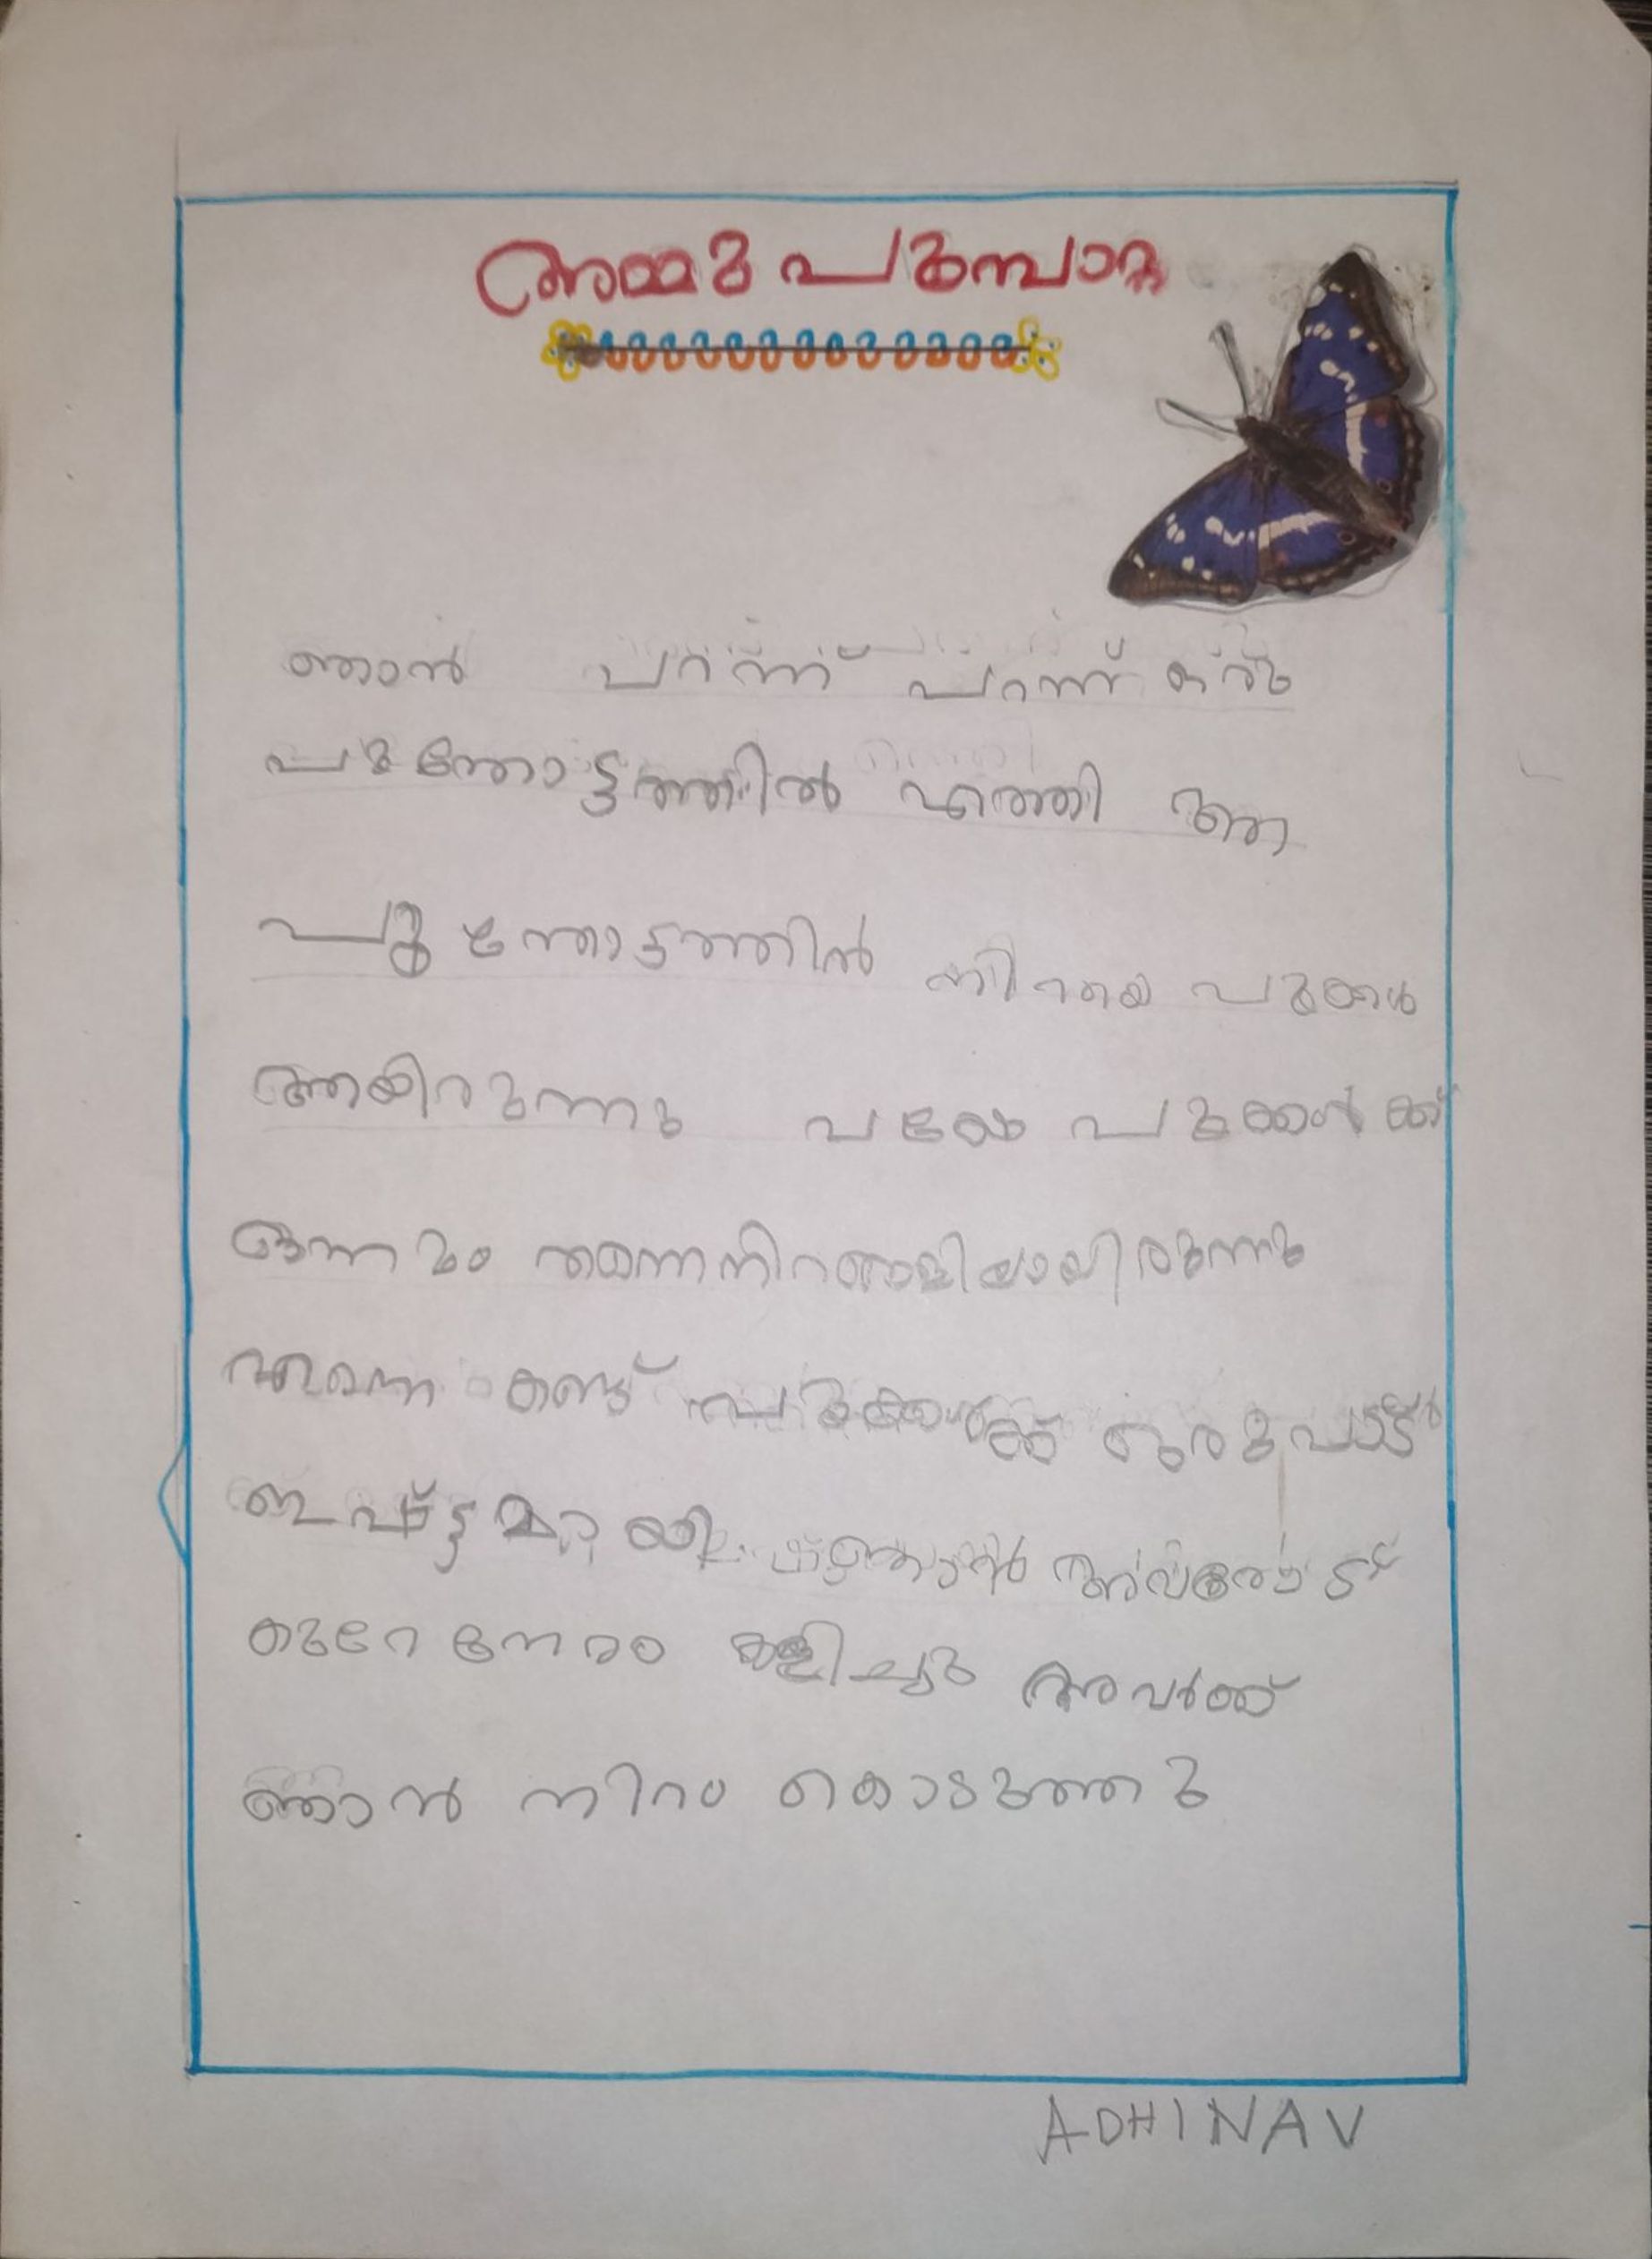 അമ്മു പൂമ്പാറ്റ
ഞാൻ പറന്ന് പറന്ന് ഒരു
പുന്തോട്ടത്തിൽ എത്തി ആ
പൂന്തോട്ടത്തിൽ നിറയെ പുക്കൾ
ആയിരുന്നു പക്ഷേ പുക്കൾക്ക്
ഒന്നും തന്നെനിറങ്ങളില്ലായിരുന്നു
എന്നെ കണ്ട് പുക്കൾക്ക് ഒരുപാട്
ഇഷ്ട്ടമായി. ഞാൻ അവരോട്
കുറേ നേരം കളിച്ചു അവർക്ക്
ഞാൻ നിറം കൊടുത്തു
ADHINAV